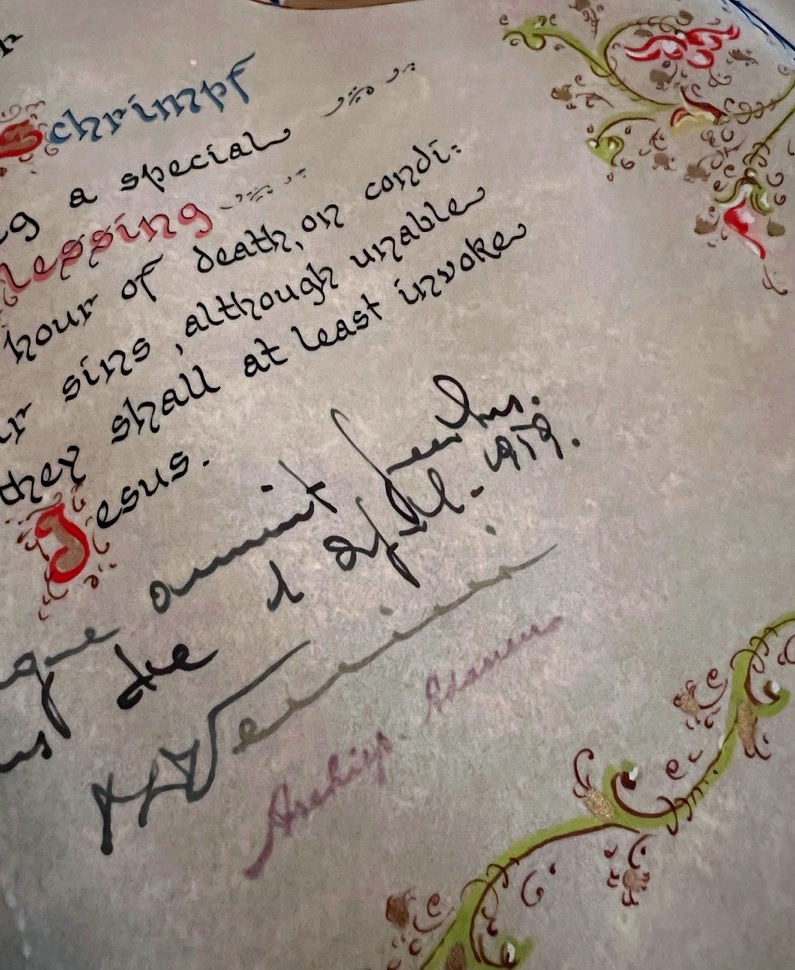 Schrimpf
g a special
lessing
hour of death, on condi:
r sins, although unable
they shall at least invoke
Jesus.
que annuit
die 1 April. 1959.
Archiep.